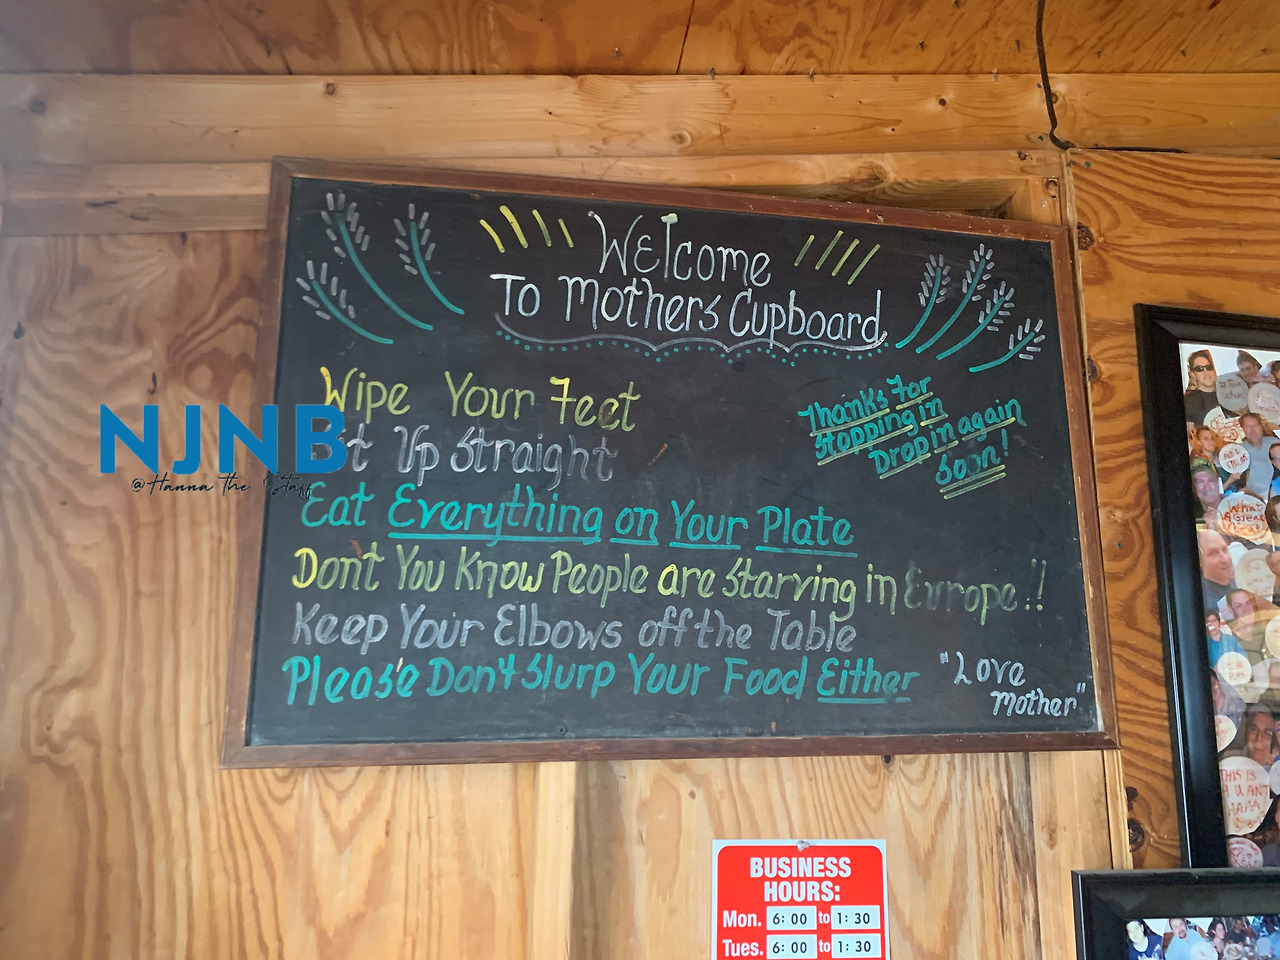 Welcome
To Mothers Cupboard
Wipe Your Feet
Up Straight
Eat Everything on Your Plate
Don't You Know People are Starving in Europe!!
Keep Your Elbows off the Table
Please Don't Slurp Your Food Either
"Love
Mother"
Thanks For
Stopping in
Drop in again
Soon!
NJNB
@Hanna the Staff
BUSINESS
HOURS:
Mon. 6:00 to 1:30
Tues. 6:00 to 1:30
What
A Great
THIS IS